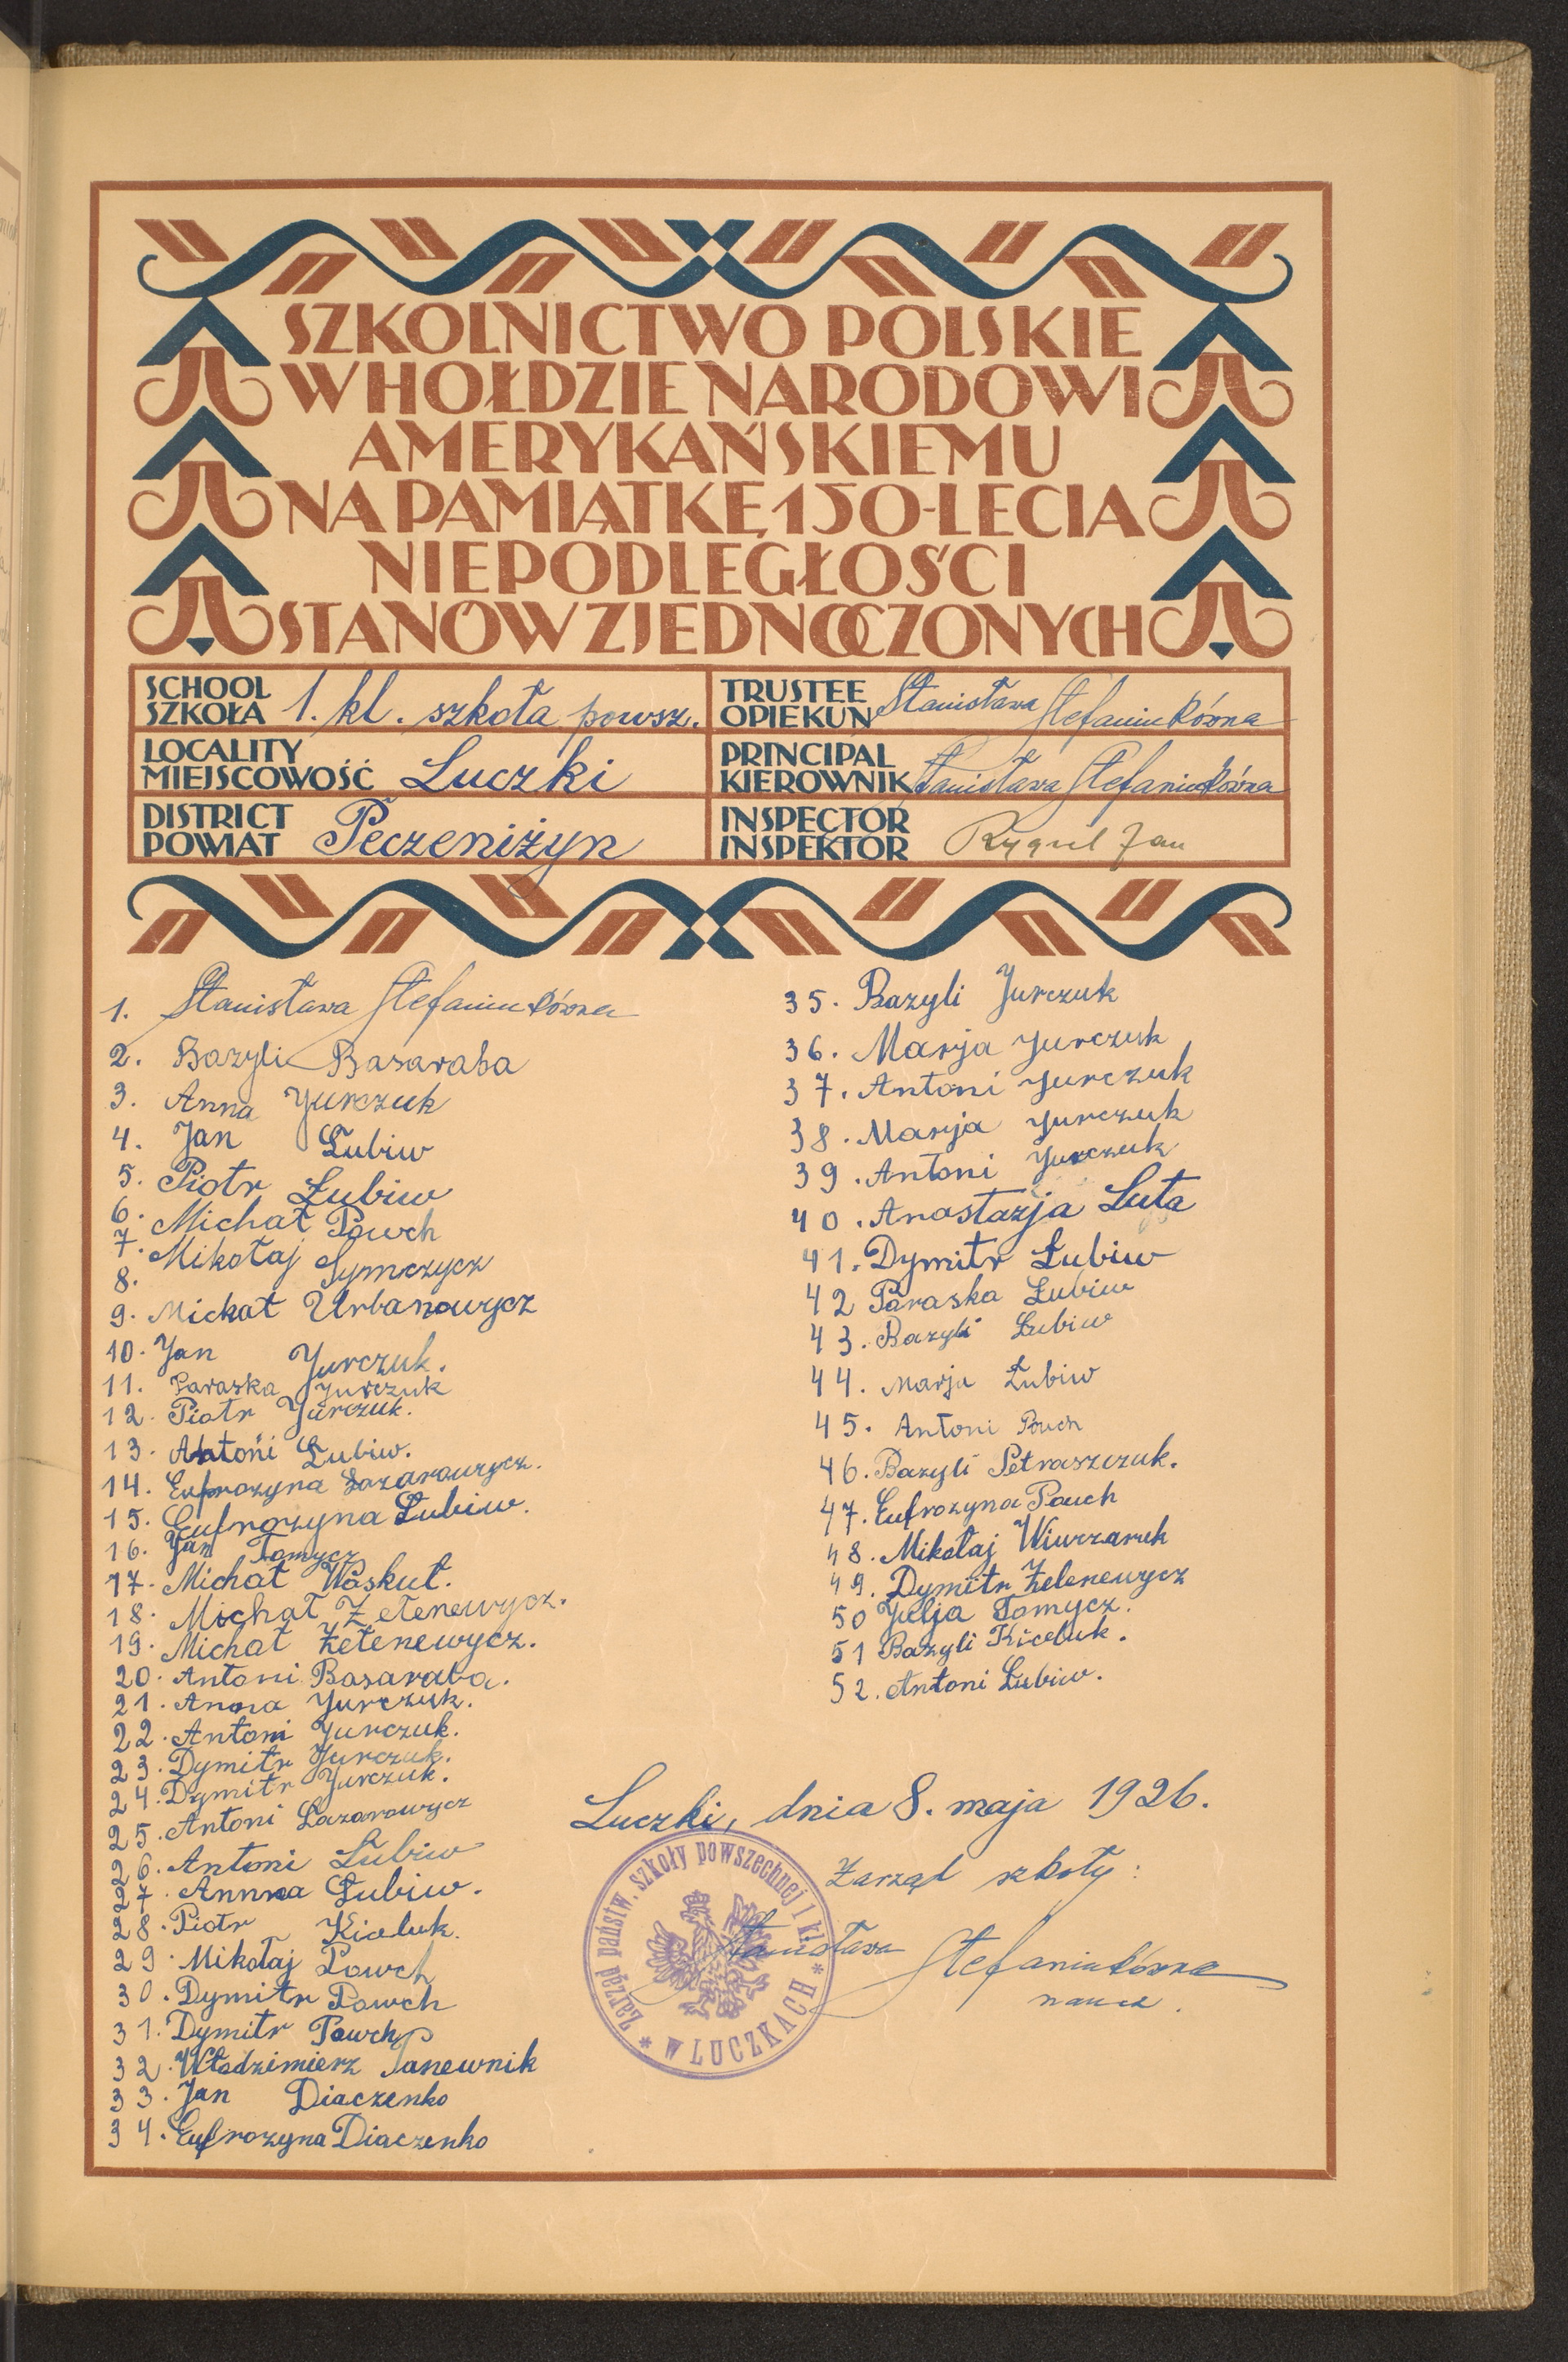 SZKOLNICTWO POLSKIE
W HOŁDZIE NARODOWI
AMERYKAŃSKIEMU
NA PAMIĄTKĘ 150-LECIA
NIEPODLEGŁOŚCI
STANÓW ZJEDNOCZONYCH
SCHOOL
SZKOŁA 1. kl. szkoła powsz.
TRUSTEE
OPIEKUN Stanisława Stefaniukówna
LOCALITY
MIEJSCOWOŚĆ Luczki
PRINCIPAL
KIEROWNIK Stanisława Stefaniukówna
DISTRICT
POWIAT Peczeniżyn
INSPECTOR
INSPEKTOR Jan
1. Stanisława Stefaniukówna
2. Bazyli Basaraba
3. Anna Jurczuk
4. Jan Łubiw
5. Piotr Łubiw
6. Michał Powch
7. Mikołaj Symczycz
8.
9. Michał Urbanowycz
10. Jan Jurczuk.
11. Paraska Jurczuk
12. Piotr Jurczuk.
13. Antoni Łubiw.
14. Eufrozyna Łazarowycz.
15. Eufrozyna Łubiw.
16. Jan Tomycz
17. Michał Waskuł.
18. Michał Żełenewycz.
19. Michał Żełenewycz.
20. Antoni Basaraba.
21. Anna Jurczuk.
22. Antoni Jurczuk.
23. Dymitr Jurczuk.
24. Dymitr Jurczuk.
25. Antoni Łazarowycz
26. Antoni Łubiw
27. Annna Łubiw.
28. Piotr Kiceluk.
29. Mikołaj Powch
30. Dymitr Powch
31. Dymitr Powch
32. Włodzimierz Panewnik
33. Jan Diaczenko
34. Eufrozyna Diaczenko
35. Bazyli Jurczuk
36. Marja Jurczuk
37. Antoni Jurczuk
38. Marja Jurczuk
39. Antoni Jurczuk
40. Anastazja Luta
41. Dymitr Łubiw
42 Paraska Łubiw
43. Bazyli Łubiw
44. Marja Łubiw
45. Antoni Pouch
46. Bazyli Petraszczuk.
47. Eufrozyna Pouch
48. Mikołaj Wiwczaruk
49. Dymitr Żelenewycz
50 Julja Tomycz.
51 Bazyli Kiceluk.
52. Antoni Łubiw.
Luczki, dnia 8. maja 1926.
Zarząd szkoły:
Stanisława Stefaniukówna
naucz.
* Zarząd państw. szkoły powszechnej 1 kl. * W LUCZKACH